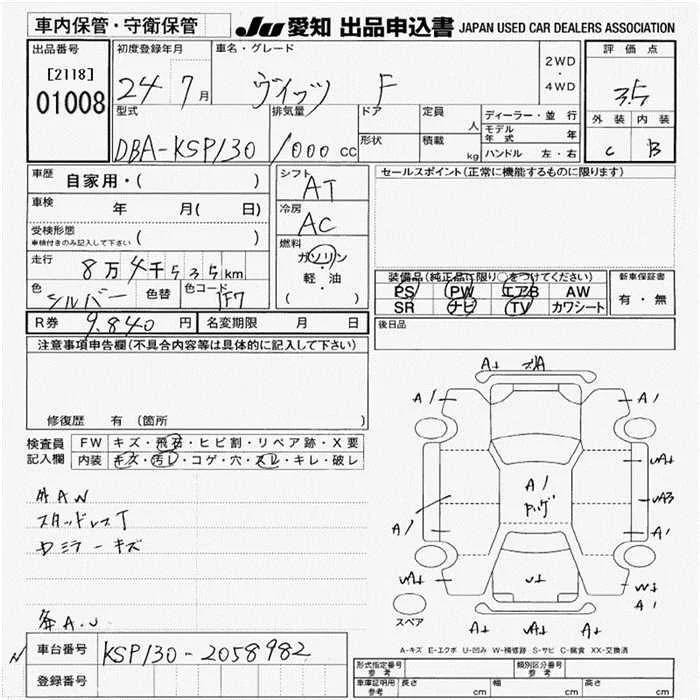 車内保管・守衛保管 JU 愛知 出品申込書 JAPAN USED CAR DEALERS ASSOCIATION
出品番号 初度登録年月 車名・グレード 2WD・4WD 評価点
[2118]
01008
24 7月 ヴィッツ F 3.5
型式 排気量 ドア 定員 人 ディーラー・並行 外装 内装
モデル年式 年
DBA-KSP130 1000 cc 形状 積載 kg ハンドル 左・右 C B
車歴 自家用・( ) シフト AT セールスポイント(正常に機能するものに限ります)
車検 年 月( 日) 冷房 AC
受検形態 車検付きのみ記入して下さい ( )
燃料 ガソリン・軽・油 ( )
走行 8万4千535km
装備品(純正品に限り○をつけてください) 新車保証書
色 シルバー 色替 色コード 1F7
PS PW エアB AW 有・無
SR ナビ TV カワシート
R券 9,840円 名変期限 月 日 後日品
注意事項申告欄(不具合内容等は具体的に記入して下さい)
修復歴 有 (箇所
検査員記入欄 FW キズ・飛石・ヒビ割・リペア跡・X要
内装 キズ・汚レ・コゲ・穴・スレ・キレ・破レ
外AW
スタッドレスT
ミラーキズ
A↓ A
A1 A1
A1 UA↓
UA3
A1 A1
UA↓ U↓ W↓
A1
スペア A↓ A↓ UA↓
A-キズ E-エクボ U-凹み W-補修跡 S-サビ C-腐食 XX-交換済
車台番号 KSP130-2058982
登録番号
形式指定番号 参考 類別区分番号 参考
車庫証明用 参考 長さ cm 幅 cm 高さ cm